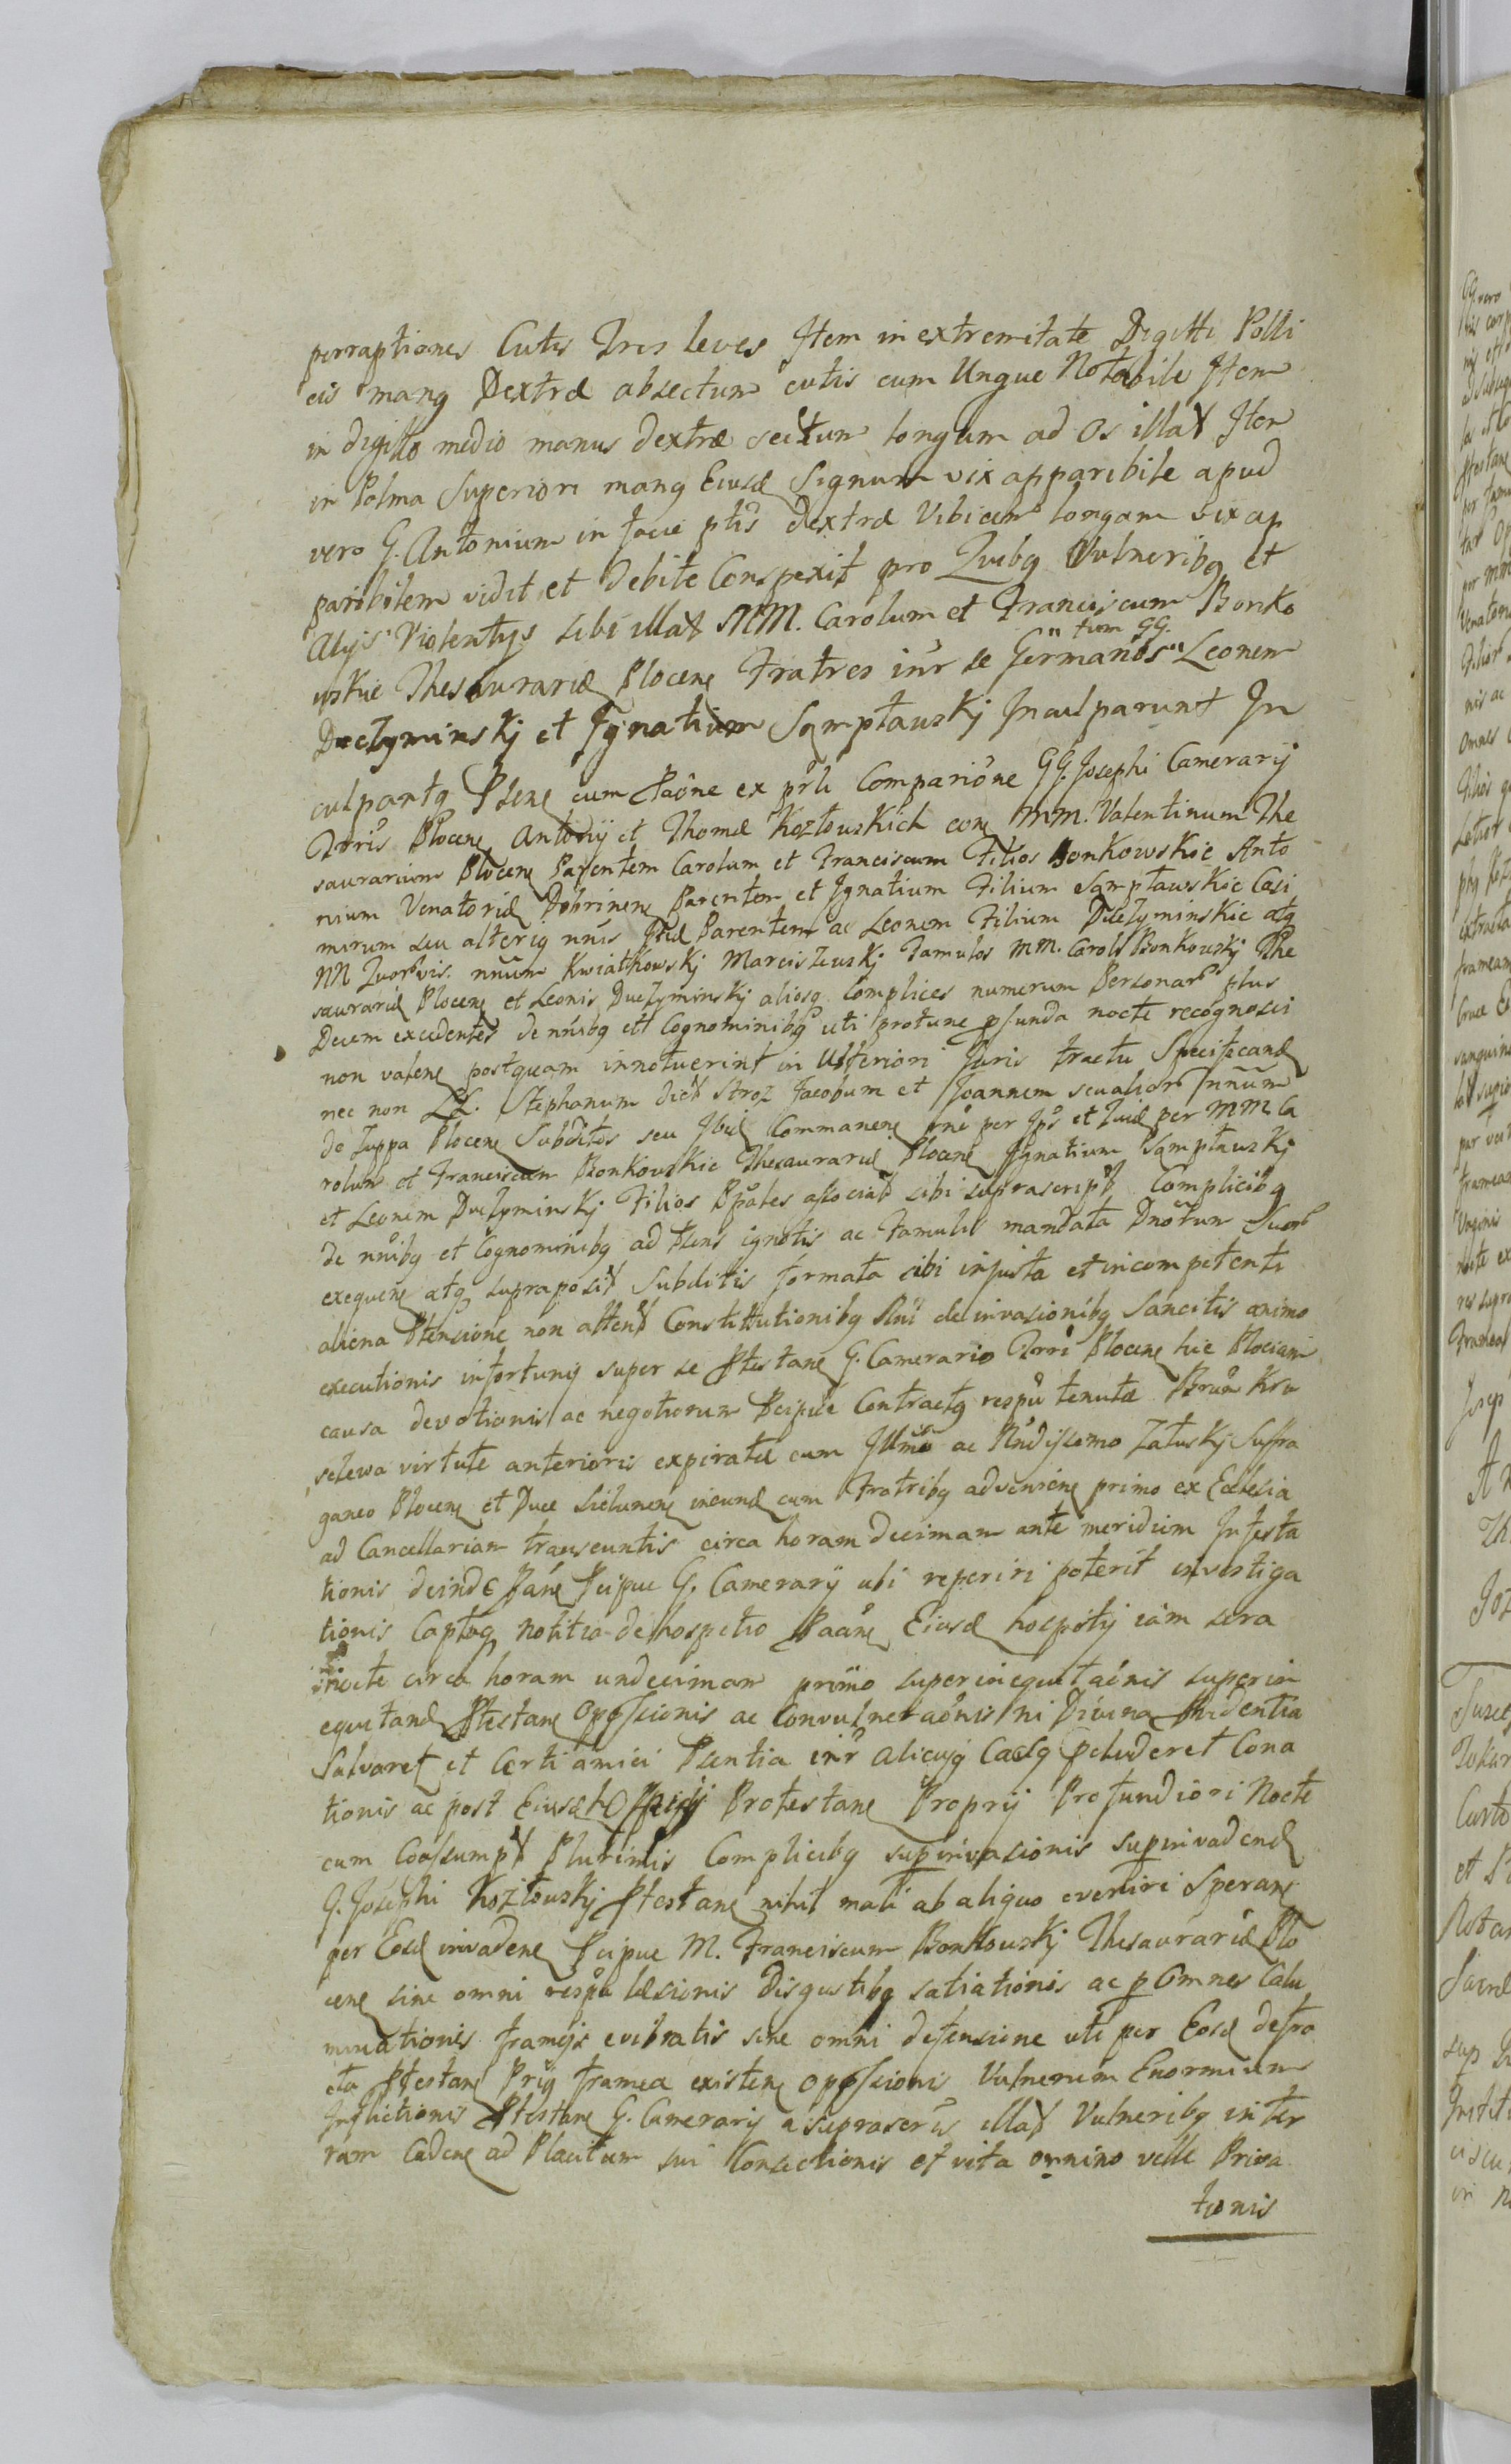 perraptiones Cutis Tres leves Item in extremitate Digitti Polli
cis mang Dextræ absectum cutis cum Ungue Notabile Item
in digitto medio manus dextræ sectum longum ad Os illat Item
in Palma Superiori mang Eiusd Signum vix apparibile apud
vero G. Antonium in facie ptis dextræ Vibicem longam vix ap
paribilem vidit et debite Conspexit pro Quibg Vulneribg et
Alijs Violentijs sibi illat MM. Carolum et Franciscum Bonko
wskie Thesaurarid Plocen Fratres inr se Germanos tum GG. Leonem
Duczyminskj et Ignatium Sqmptawskj Inculparunt In
culpantg Psens cum Ptaone ex prli Comparione GG. Josephi Camerarij
Trris Plocen Antonij et Thomæ Kozłowskich con MM. Valentinum The
saurarium Plocen Parentem Carolum et Franciscum Filios Bonkowskie Anto
nium Venatorid Dobrinen Parentem et Ignatium Filium Sqmptawskie Casi
mirum seu alterig nnis Itid Parentem ac Leonem Filium Duczyminskie atg
NN Quorvis. nnum Kwiatkowskj Marciszewskj Famulos MM. Caroli Bonkowskj The
saurarid Plocen et Leonis Duczyminskj aliosg Complices numerum Personar plus
Decem excedentes de nnibg ett Cognominibg uti protunc pfunda nocte recognosci
non valen postquam innotuerint in Ulteriori Juris tractu Specificand
nec non LL. Stephanum dict Stroz Jacobum et Joannem seu alior nnum
de Zuppa Plocen Subditos seu Ibid Commanen pne per Ips et Quid per MM. Ca
rolum et Franciscum Bonkowskie Thesaurarid Plocen Ignatium Sqmptawskj
et Leonem Duczyminskj Filios Ppales associat sibi suprascript Complicibg
de nnibg et Cognominibg ad Psens ignotis ac Famulis mandata Dnorum Suor
exequen atg supraposit Subditis formata sibi injusta et incompetenti
aliena Ptensione non attent Constitutionibg Rni de invasionibg Sancitis animo
executionis infortunij super se Ptestane G. Camerario Trri Plocen huc Plociam
causa devotionis ac negotiorum Pcipue Contractg respu tenutæ Bron Kro
sclewa virtute anterioris expiratæ cum Illmo ac Rndissomo Załuskj Suffra
ganeo Plocen et Duce Sielunen ineund cum Fratribg advenien primo ex Ecclesia
ad Cancellariam transeuntis circa horam decimam ante meridiem Infesta
tionis deinde Pcipue G. Camerarij ubi reperiri poterit investiga
tionis Captog notitia de hospitio Eiusd hospitij iam sera
nocte circa horam undecimam primo superinequitaonis superin
equitand Ptestan Oppssionis ac Convulneraonis ni Divina Pvidentia
Salvaret et Certi amici Psentia inr alicujg Casg Pcluderet Cona
tionis ac post Eiusd Protestane Proprij Profundiori Nocte
cum Coassumpt Plurimis Complicibg supinvasionis supinvadend
G. Josephi Kozłowskj Ptestane nihil mali ab aliquo evenire Sperane
per Eosd invaden Pcipue M. Franciscum Bonkowskj Thesaurarid Plo
cen sine omni respu læsionis Disgustibg satiationis ac p Omnes Calu
mniationis frameis evibratis sine omni defensione uti per Eosd defra
cta Ptestan Prig framea existen oppssionis Vulnerum Enormium
Inflictionis Ptestane G. Camerarij a suprascris illat Vulneribg in ter
ram Caden ad Placitum sui Consectionis et vita omnino velle Priva
tionis